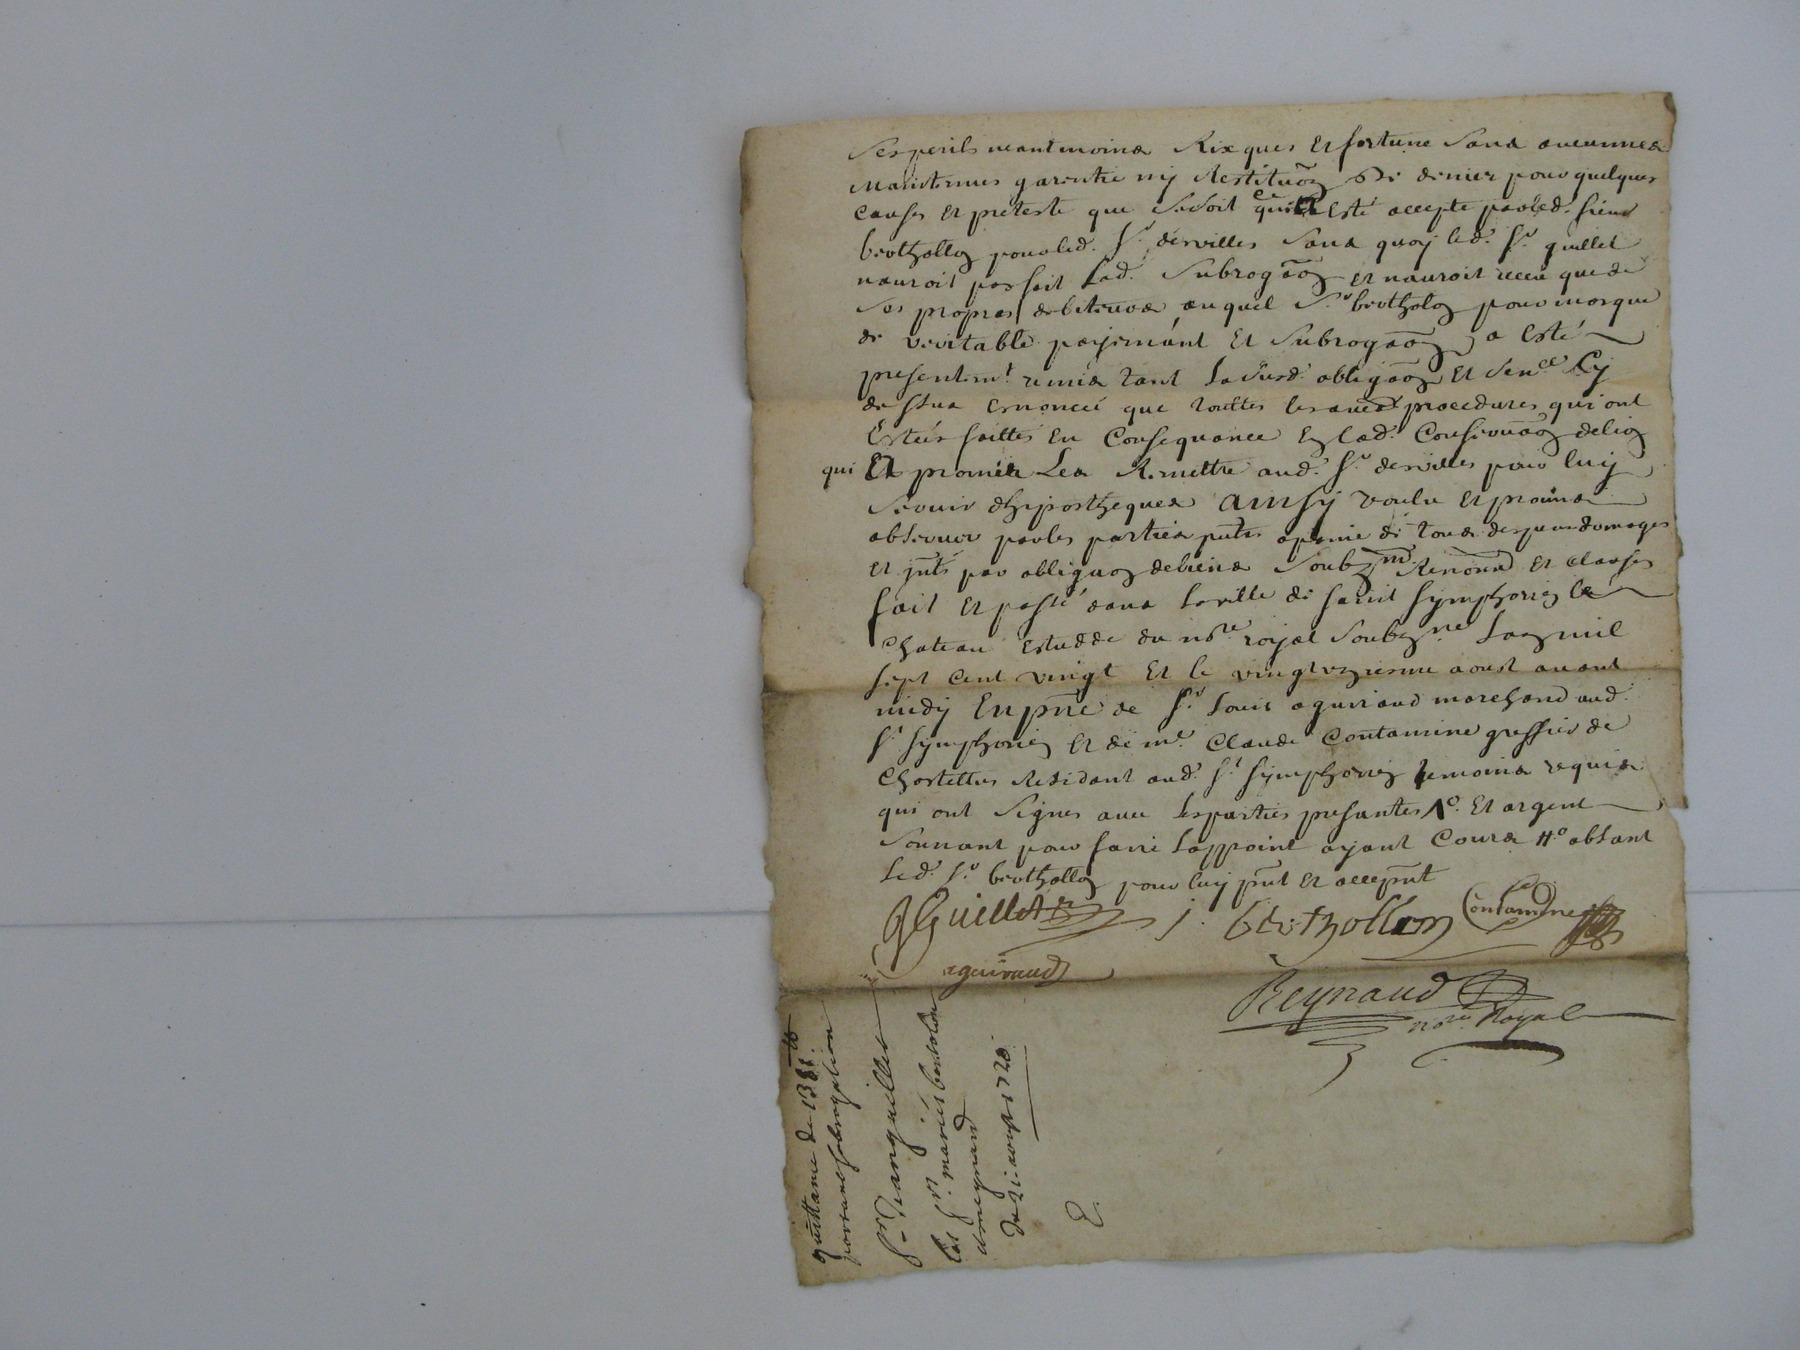 ses perils neantmoins Rixques et fortune sans aucunnes
Maintenues garentie ny Restituõn de denier pour quelques
causes et preteste que ce soit ce qui a esté accepté par led. sieur
bertholloy pour led. sr. dervilles sans quoy led. sr. guillet
nauroit pas fait lad. subrogãon et nauroit receu que de
ses propres debiteurs auquel sr. bertholoy pour marque
de veritable payemant et subrogãon a esté
presentemt. remis tant la susd. obligãon et sence. Cy
dessus enoncée que touttes les autres procedures qui ont
estées faittes en consequance et lad.
qui Et promis les Remettre aud. sr. dervilles pour luy
servir dhiposthequer ainsy voulu et promis
observer par les parties pntes a peine de tous despans domages
et intes par obligaon de biens soubzmis. Renona et clauses
fait et passé dans la ville de saint symphorien le
chateau estudde du nore. royal soubzne. lan mil
sept cent vingt et le vingt unziesme aoust avant
midy En pnce de sr. Louis aguiraud marchand aud.
st. symphorien et de me. Claude Contamine greffier de
Chastellus Residant aud. st. symphorien temoins requis
qui ont signes avec les parties presantes Ao. Et argent
sonnant pour faire lappoint ayant cours #o absant
led. sr. bertholloy pour luy pnt et accepnt
JGuillet j. bertholloy Contamine
aguiraud
Reynaud
nore. Royal
quittance de 1381 tt
portant subrogation
sr. Jean guillet
les srs. mariés bertholon
et reynaud
du 21 aoust 1720